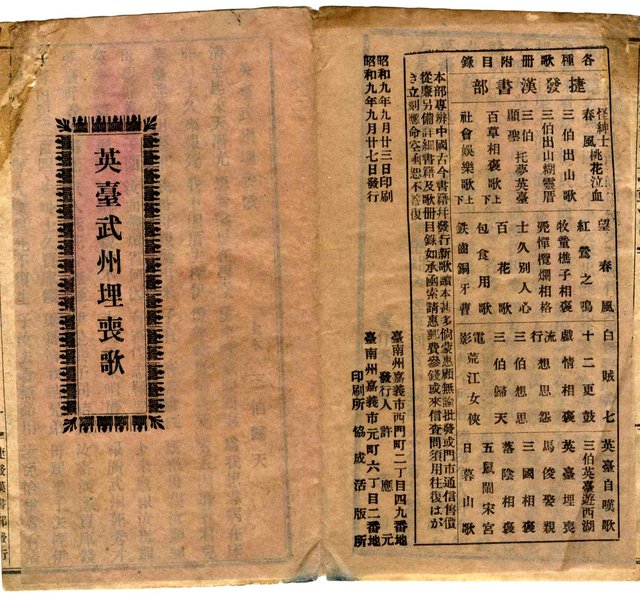 各種歌冊附目錄
捷發漢書部
怪紳士桃花泣血
春風
三伯出山歌
三伯出山糊靈厝
三伯顯聖 托夢英臺
百草相褒歌上下
社會娛樂歌上下
望春風
紅鶯之鳴
牧童樵子相褒
士久別人心
百花歌
包食用歌
鐵齒銅牙曹
白賊七
十二更鼓
戲情相褒
流行想思怨
三伯想思
三伯歸天
電影荒江女俠
英臺自嘆歌
三伯英臺遊西湖
英臺埋喪
馬俊娶親
三國相褒
落陰相褒
五鼠鬧宋宮
日暮山歌
本部專辦中國古今書籍并發行新歌讀本甚多倘蒙惠顧無論批發或門市通信售價
從廉另備詳細書籍及歌冊目錄如承函索請惠郵費參錢或來信查問須用往復はが
き立刻應命空函恕不答復
昭和九年九月廿三日印刷
昭和九年九月廿七日發行
臺南州嘉義市西門町二丁目四九番地
發行人 許應元
臺南州嘉義市元町六丁目二番地
印刷所 協成活版所
英臺武州埋喪歌